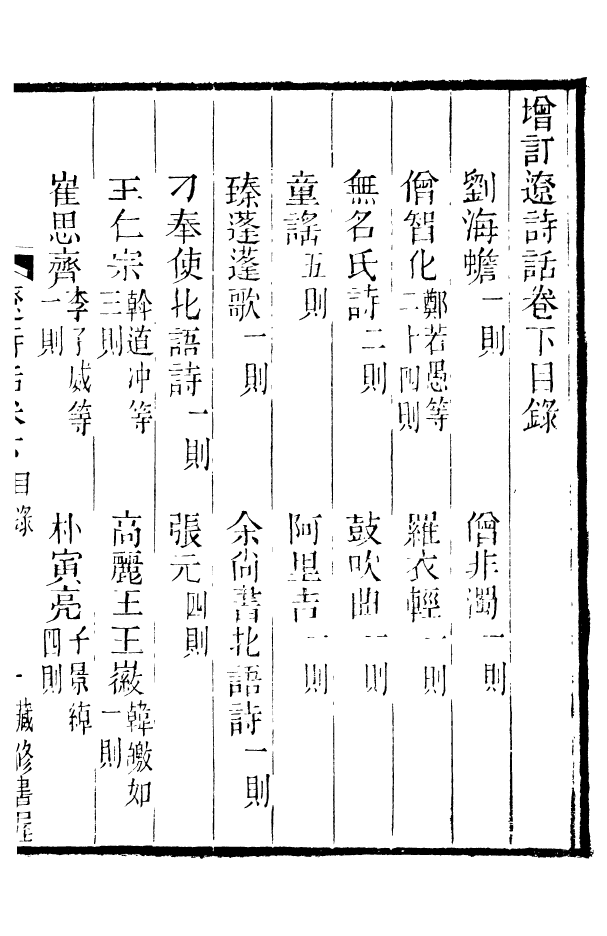 增訂遼詩話卷下目錄
劉海蟾一則　僧非濁一則
僧智化鄭若愚等二十四則　羅衣輕一則
無名氏詩二則　鼓吹曲一則
童謠五則　阿里吉一則
臻蓬蓬歌一則　余尙書北語詩一則
刁奉使北語詩一則　張元四則
王仁宗斡道冲等三則　高麗王王徽韓繳如一則
崔思齊李子威等一則　朴寅亮子景綽四則
遼詩話卷下目錄　一　藏修書屋